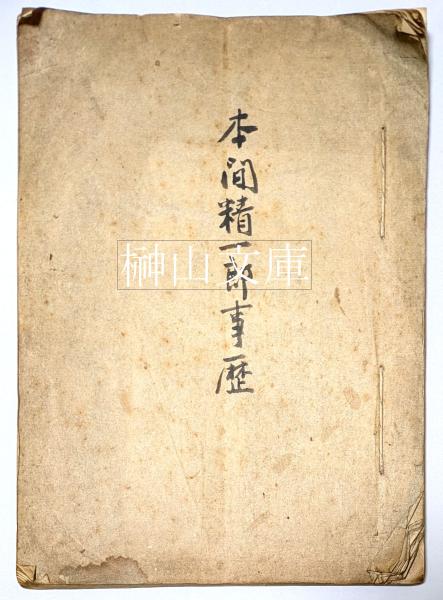 本間精一郎事歴
榊山文庫